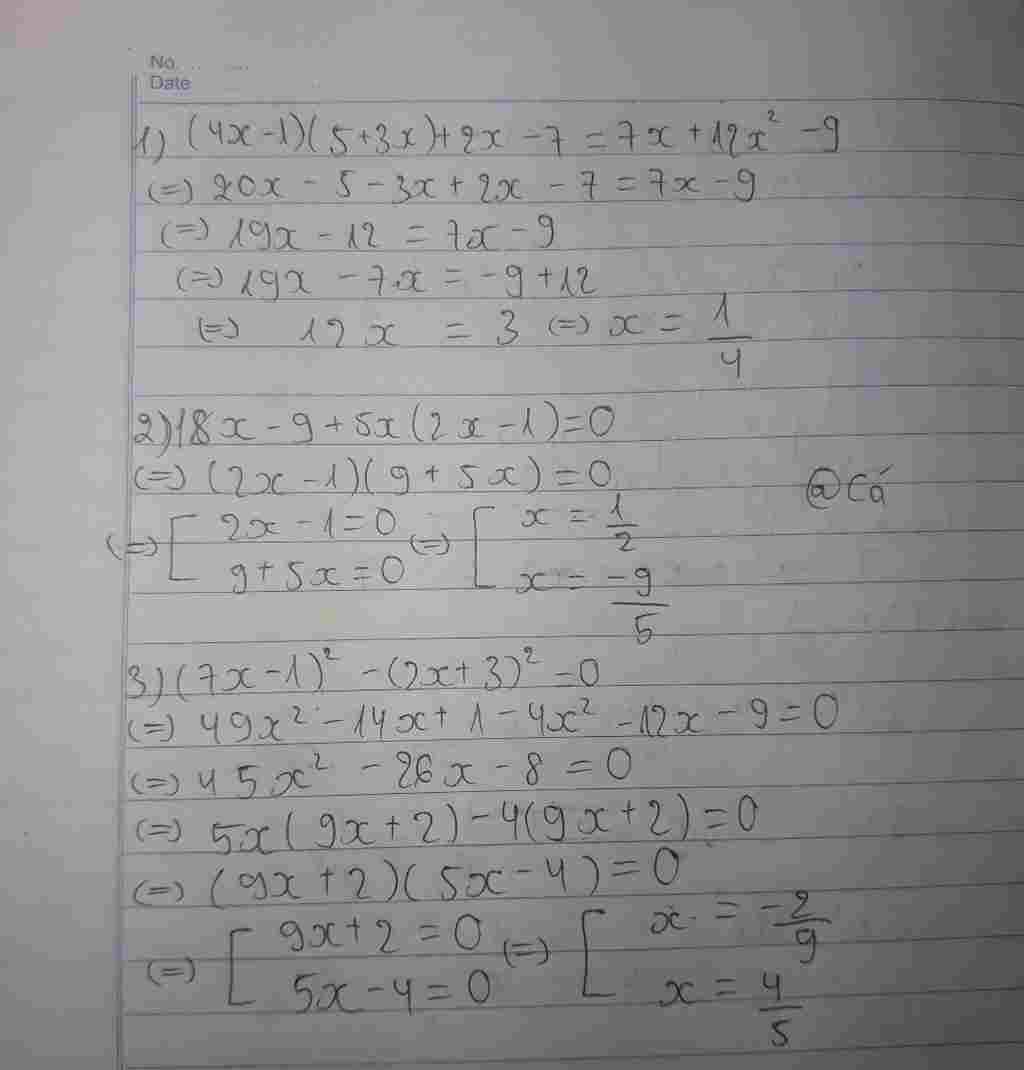 No.
Date
1) (4x-1)(5+3x)+2x-7=7x+12x²-9
(=) 20x-5-3x+2x-7=7x-9
(=) 19x-12=7x-9
(=) 19x-7x=-9+12
(=) 12x=3 (=) x=1/4
2) 18x-9+5x(2x-1)=0
(=) (2x-1)(9+5x)=0
@Cá
(=) [ 2x-1=0 (=) [ x=1/2
9+5x=0 x=-9/5
3) (7x-1)²-(2x+3)²=0
(=) 49x²-14x+1-4x²-12x-9=0
(=) 45x²-26x-8=0
(=) 5x(9x+2)-4(9x+2)=0
(=) (9x+2)(5x-4)=0
(=) [ 9x+2=0 (=) [ x=-2/9
5x-4=0 x=4/5